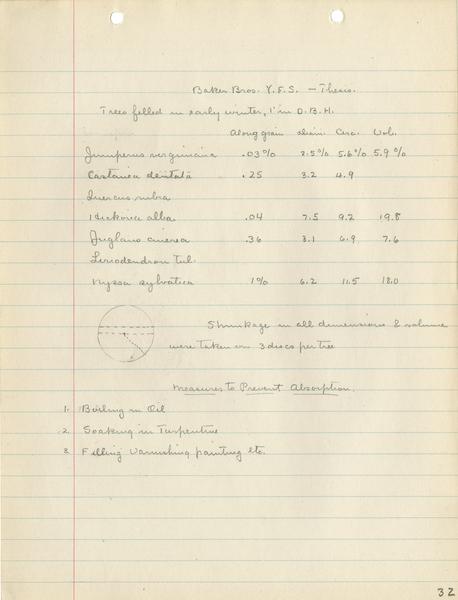 Baker Bros. Y.F.S. – Thesis.
Trees felled in early winter, 1' in D.B.H.
Along grain diam. Circ. Vol.
Juniperus virginiana .03% 2.5% 5.6% 5.9%
Castanea dentata .25 3.2 4.9
Quercus rubra
Hickoria alba .04 7.5 9.2 19.8
Juglans cinerea .36 3.1 6.9 7.6
Liriodendron tul.
Nyssa sylvatica 1% 6.2 11.5 18.0
Shrinkage in all dimensions & volume
were taken on 3 discs per tree
Measures to Prevent Absorption.
1. Boiling in Oil
2. Soaking in Turpentine
3. Filling Varnishing painting etc.
32